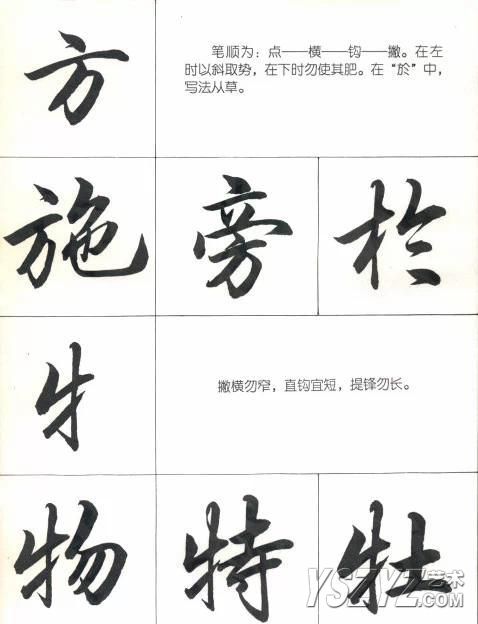 方
笔顺为：点——横——钩——撇。在左
时以斜取势，在下时勿使其肥。在“於”中，
写法从草。
施 旁 於
牜
撇横勿窄，直钩宜短，提锋勿长。
物 特 牡
YSZYZ艺术
.COM